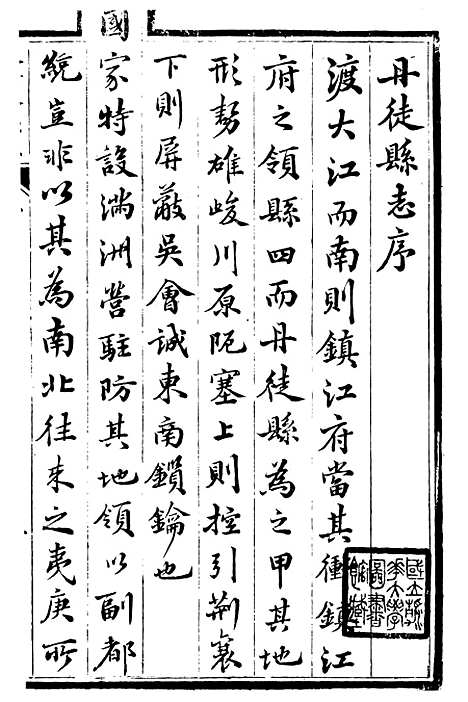 丹徒縣志序
渡大江而南則鎮江府當其衝鎮江
府之領縣四而丹徒縣為之甲其地
形勢雄峻川原阨塞上則控引荊襄
下則屏蔽吳會誠東南鎖鑰也
國家特設滿洲營駐防其地領以副都
統豈非以其為南北往來之夷庚所